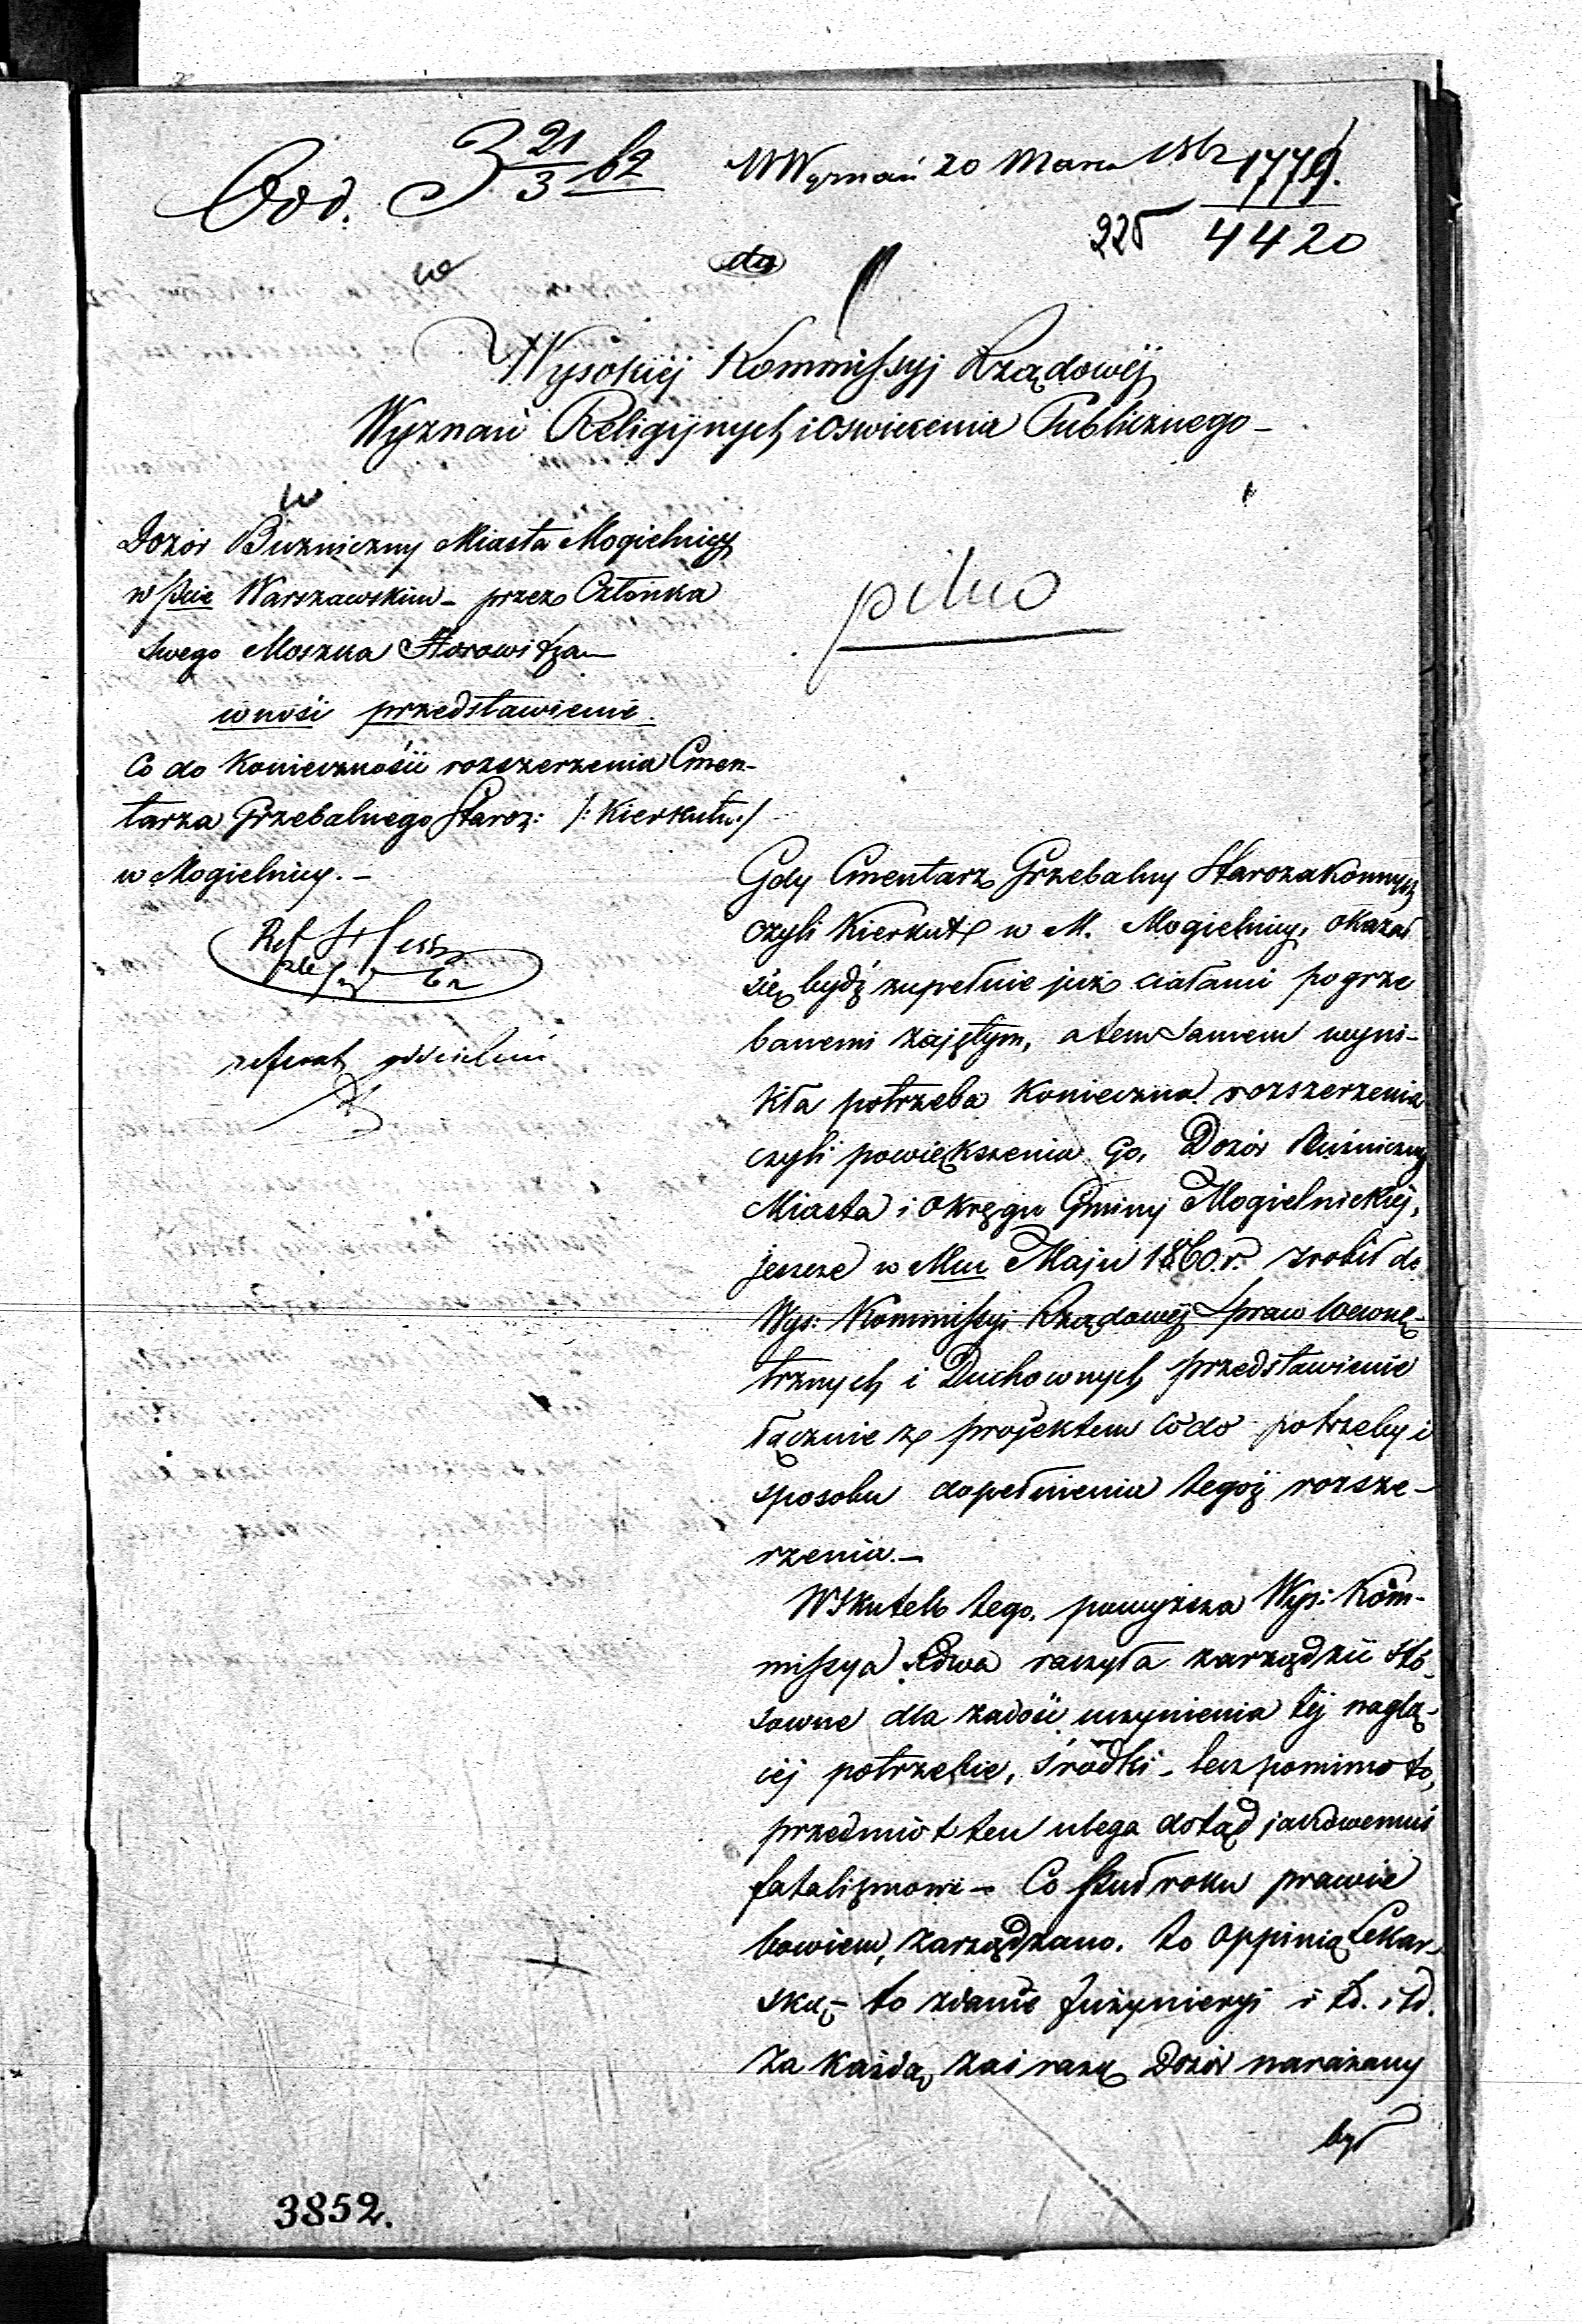 Odd. 3 21/3 62
W Wyznań 20 Marca 1862 1779.
225 4420
do
Wysokiej Kommissyj Rządowéj
Wyznań Religijnych i Oswiecenia Publicznego -
Dozór Bużniczny Miasta Mogielnicy
w Pcie Warszawskim - przez Członka
swego Moszka Horowitza -
wnosi przedstawienie.
Co do Konieczności rozszerzenia Cmen-
tarza Grzebalnego Staroz: /: Kierkutu :/
w Mogielnicy. -
pilno
Ref
referat oddzielny
Gdy Cmentarz Grzebalny Starozakonnych
czyli Kierkut w M. Mogielnicy, okazał
się bydź zupełnie już ciałami pogrze
banemi zajętym, a tem samem wyni-
kła potrzeba Konieczna rozszerzenia
czyli powiększenia go, Dozór Bużniczny
Miasta i Okręgu Gminy Mogielnickiéj,
jeszcze w Mcu Maju 1860. r. zrobił do
Wys: Kommissyi Rządowéj Spraw Wewnę-
trznych i Duchownych przedstawienie
łącznie z projektem co do potrzeby i
sposobu dopełnienia tegoż rozsze-
rzenia. -
W Skutek tego, powyższa Wys: Kom-
missya Rdwa raczyła zarządzić sto-
sowne dla zadość uczynienia téj naglą-
céj potrzebie, środki - lecz pomimo to,
przedmiot ten ulega dotąd jakowemuś
fatalizmowi - Co pół roku prawie
bowiem, zarządzano, to oppinią Lekar-
ską - to zdanie Inżynieryi i td. i td.
Za każdą zaś razą Dozór narażany
był
3852.